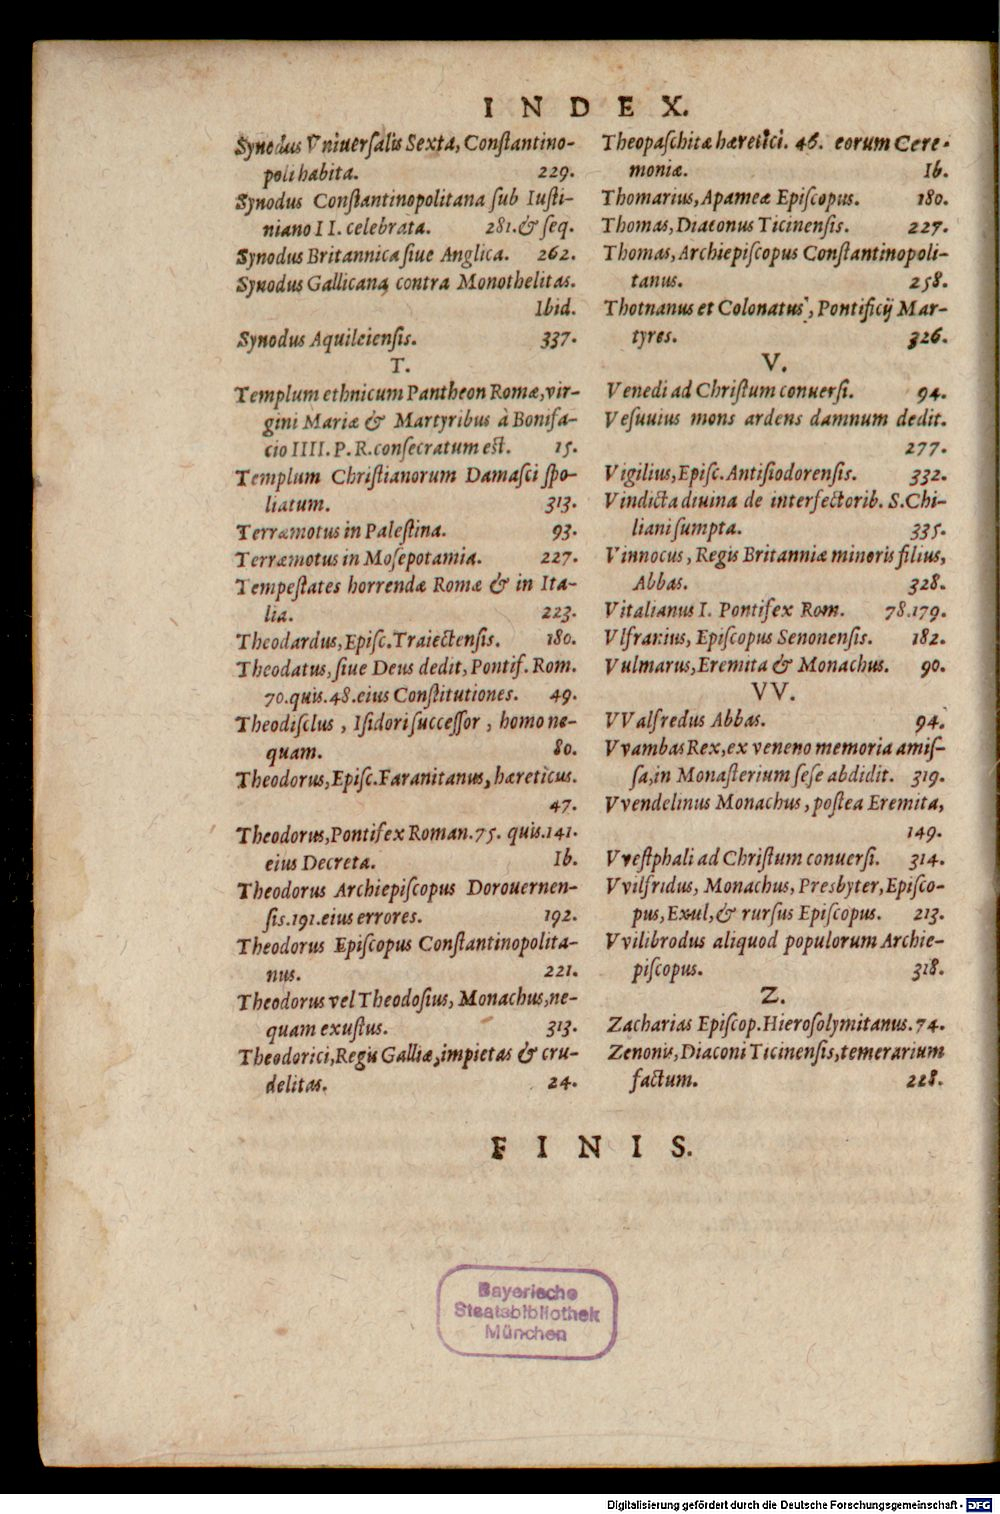 INDEX.
Synodus Vniuersalis Sexta, Constantino-
poli habita. 229.
Synodus Constantinopolitana sub Iusti-
niano II. celebrata. 281. & seq.
Synodus Britannica siue Anglica. 262.
Synodus Gallicana contra Monothelitas.
Ibid.
Synodus Aquileiensis. 337.
T.
Templum ethnicum Pantheon Romæ, vir-
gini Mariæ & Martyribus à Bonifa-
cio IIII. P. R. consecratum est. 15.
Templum Christianorum Damasci spo-
liatum. 313.
Terræmotus in Palestina. 93.
Terræmotus in Mosepotamia. 227.
Tempestates horrendæ Romæ & in Ita-
lia. 223.
Theodardus, Episc. Traiectensis. 180.
Theodatus, siue Deus dedit, Pontif. Rom.
70. quis. 48. eius Constitutiones. 49.
Theodisclus, Isidori successor, homo ne-
quam. 80.
Theodorus, Episc. Faranitanus, hæreticus.
47.
Theodorus, Pontifex Roman. 75. quis. 141.
eius Decreta. Ib.
Theodorus Archiepiscopus Dorouernen-
sis. 191. eius errores. 192.
Theodorus Episcopus Constantinopolita-
nus. 221.
Theodorus vel Theodosius, Monachus, ne-
quam exustus. 313.
Theodorici, Regis Galliæ, impietas & cru-
delitas. 24.
Theopaschitæ hæretici. 46. eorum Cere-
moniæ. Ib.
Thomarius, Apameæ Episcopus. 180.
Thomas, Diaconus Ticinensis. 227.
Thomas, Archiepiscopus Constantinopoli-
tanus. 258.
Thotnanus et Colonatus, Pontificij Mar-
tyres. 326.
V.
Venedi ad Christum conuersi. 94.
Vesuuius mons ardens damnum dedit.
277.
Vigilius, Episc. Antisiodorensis. 332.
Vindicta diuina de interfectorib. S. Chi-
liani sumpta. 335.
Vinnocus, Regis Britanniæ minoris filius,
Abbas. 328.
Vitalianus I. Pontifex Rom. 78. 179.
Vlfranius, Episcopus Senonensis. 182.
Vulmarus, Eremita & Monachus. 90.
VV.
VValfredus Abbas. 94.
Vvambas Rex, ex veneno memoria amis-
sa, in Monasterium sese abdidit. 319.
Vvendelinus Monachus, postea Eremita,
149.
Vvestphali ad Christum conuersi. 314.
Vvilfridus, Monachus, Presbyter, Episco-
pus, Exul, & rursus Episcopus. 213.
Vvilibrodus aliquod populorum Archie-
piscopus. 318.
Z.
Zacharias Episcop. Hierosolymitanus. 74.
Zenonis, Diaconi Ticinensis, temerarium
factum. 228.
FINIS.
Bayerische
Staatsbibliothek
München
Digitalisierung gefördert durch die Deutsche Forschungsgemeinschaft - DFG